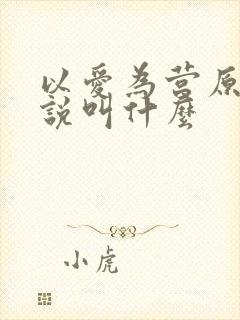 以愛為營原
說叫什麼
小虎